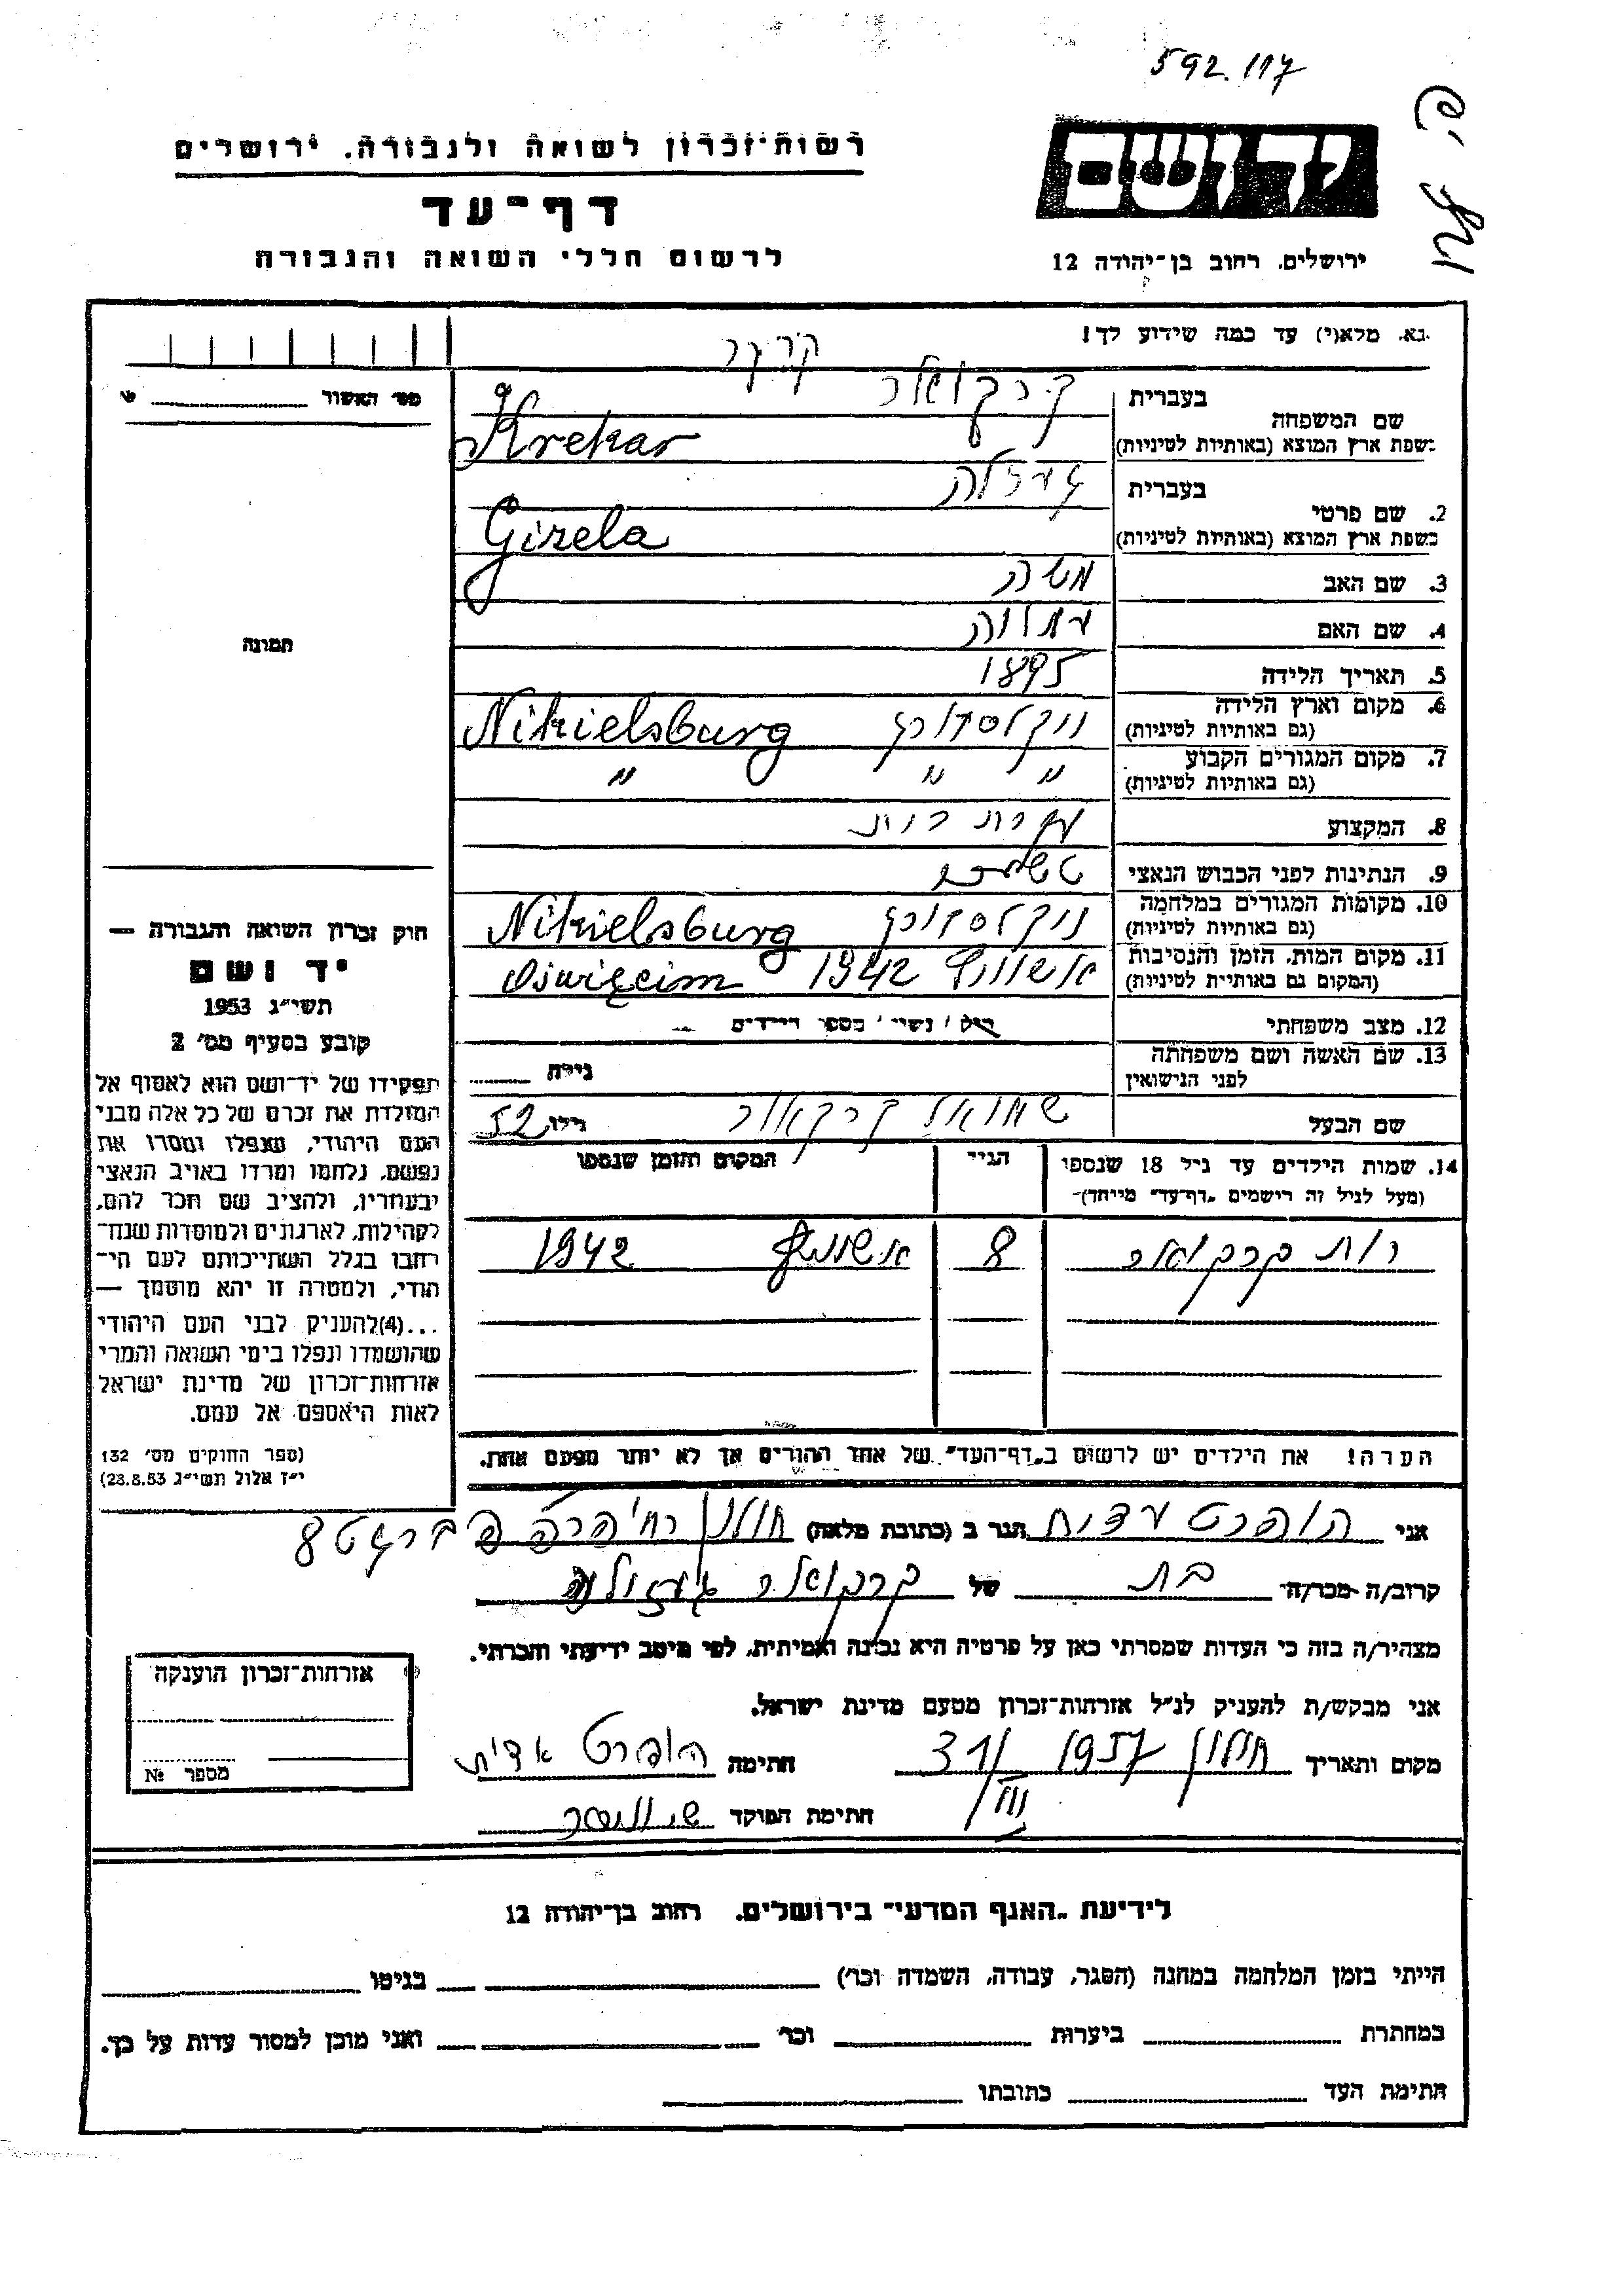 592.117
רשות־זכרון לשואה ולגבורה. ירושלים
דף־עד
לרשום חללי השואה והגבורה
ידושם
ירושלים, רחוב בן־יהודה 12
נא. מלא(י) עד כמה שידוע לך!
קרקר
מס׳ האשור
שם המשפחה
בעברית
קרקואר
בשפת ארץ המוצא (באותיות לטיניות)
Krekar
2. שם פרטי
בעברית
גיזלה
בשפת ארץ המוצא (באותיות לטיניות)
Gizela
3. שם האב משה
4. שם האם
5. תאריך הלידה 1895
6. מקום וארץ הלידה
(גם באותיות לטיניות)
ניקלסדורף Nikielsburg
7. מקום המגורים הקבוע
(גם באותיות לטיניות)
" " "
8. המקצוע עקרת בית
9. הנתינות לפני הכבוש הנאצי
10. מקומות המגורים במלחמה
(גם באותיות לטיניות)
ניקלסדורף Nikielsburg
11. מקום המות, הזמן והנסיבות
(המקום גם באותיות לטיניות)
אושוויץ 1942 Oświęcim
12. מצב משפחתי
מספר הילדים
13. שם האשה ושם משפחתה
לפני הנישואין
גילה
שם הבעל שמואל קרקואר גילו 52
14. שמות הילדים עד גיל 18 שנספו
(מעל לגיל זה רישמים „דף־עד" מייחד)־
הגיל
המקום והזמן שנספו
רות קרקואר 8 אושוויץ 1942
הערה! את הילדים יש לרשום ב„דף־העד" של אחד ההורים אך לא יותר מפעם אחת.
תמונה
חוק זכרון השואה והגבורה —
יד ושם
תשי״ג 1953
קובע בסעיף מס׳ 2
תפקידו של יד־ושם הוא לאסוף אל
המולדת את זכרם של כל אלה מבני
העם היהודי, שנפלו ומסרו את
נפשם, נלחמו ומרדו באויב הנאצי
ובעוזריו, ולהציב שם וזכר להם,
לקהילות, לארגונים ולמוסדות שנח־
רבו בגלל השתייכותם לעם הי־
הודי, ולמטרה זו יהא מוסמך —
...(4)להעניק לבני העם היהודי
שהושמדו ונפלו בימי השואה והמרי
אזרחות־זכרון של מדינת ישראל
לאות היאספם אל עמם.
(ספר החוקים מס׳ 132
י״ז אלול תשי״ג 28.8.53)
אני הופרט עדית הגר ב (כתובת מלאה) חולון
קרוב/ה־מכר/ה בת של קרקואר גיזלה
מצהיר/ה בזה כי העדות שמסרתי כאן על פרטיה היא נכונה ואמיתית, לפי מיטב ידיעתי והכרתי.
אני מבקש/ת להעניק לנ״ל אזרחות־זכרון מטעם מדינת ישראל.
מקום ותאריך חולון 1957 31/VII חתימה הופרט אדית
חתימת הפוקד
אזרחות־זכרון הוענקה
מספר №
לידיעת „האגף המדעי" בירושלים, רחוב בן־יהודה 12
הייתי בזמן המלחמה במחנה (הסגר, עבודה, השמדה וכר׳) בגיטו
במחתרת ביערות וכר׳ ואני מוכן למסור עדות על כך.
חתימת העד כתובתו